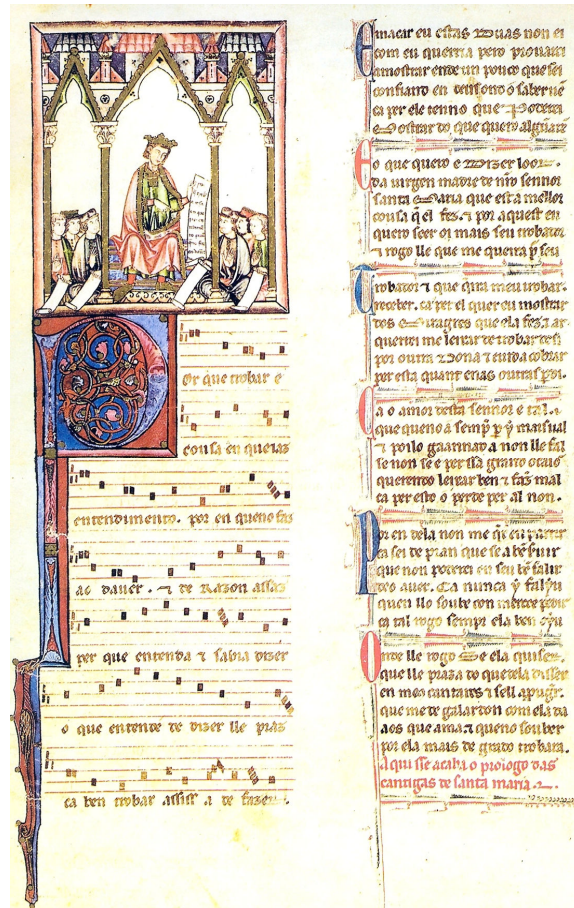 Por que trobar e
cousa en que iaz
entendimento. por en queno faz
ao dauer. ⁊ de Razon assaz
per que entenda ⁊ sabia dizer
o que entende de dizer lle praz
ca ben trobar assiss a de fazer.
E macar eu estas Duas non ei
com eu querria pero prouarei
amostrar ende un pouco que sei
confiand en deus ond o saber ue
ca per ele tenno que Poderei
Mostrar do que quero algũa rẽ
E o que quero e Dizer loor.
da uirgen madre de nr̃o sennor
santa Maria que est a mellor
cousa q̃ el fez. ⁊ por aquest eu
quero seer oi mais seu trobador
⁊ rogo lle que me queira p̃ seu
Trobador ⁊ que q̃ira meu trobar.
receber. ca per el quer eu mostrar
dos Miragres que ela fez. ⁊ ar
querrei me leixar de trobar desi
por outra Dona ⁊ cuida cobrar
per esta quant enas outras p̃di.
Ca o amor desta sennor e tal.
que queno a semp̃ p̃ y mais ual
⁊ poilo gaannad a non lle fal
se non se e per ssa grand ocaiõ
querendo leixar ben ⁊ faz mal
ca per esto o perde per al non.
Por en dela non me q̃r eu partir
ca sei de pran que se a bẽ seruir
que non poderei en seu bẽ falir
deo auer. Ca nunca y faliu
quen llo soube con mercee pedir
ca tal rogo sempr ela ben oyu
Onde lle rogo Se ela quiser.
que lle praza do que dela disser
en meus cantares ⁊ sell ap̃uguer.
que me de galardon com ela da
aos que ama. ⁊ queno souber
por ela mais de grado trobara.
Aqui sse acaba o prologo das
cantigas de santa maria.